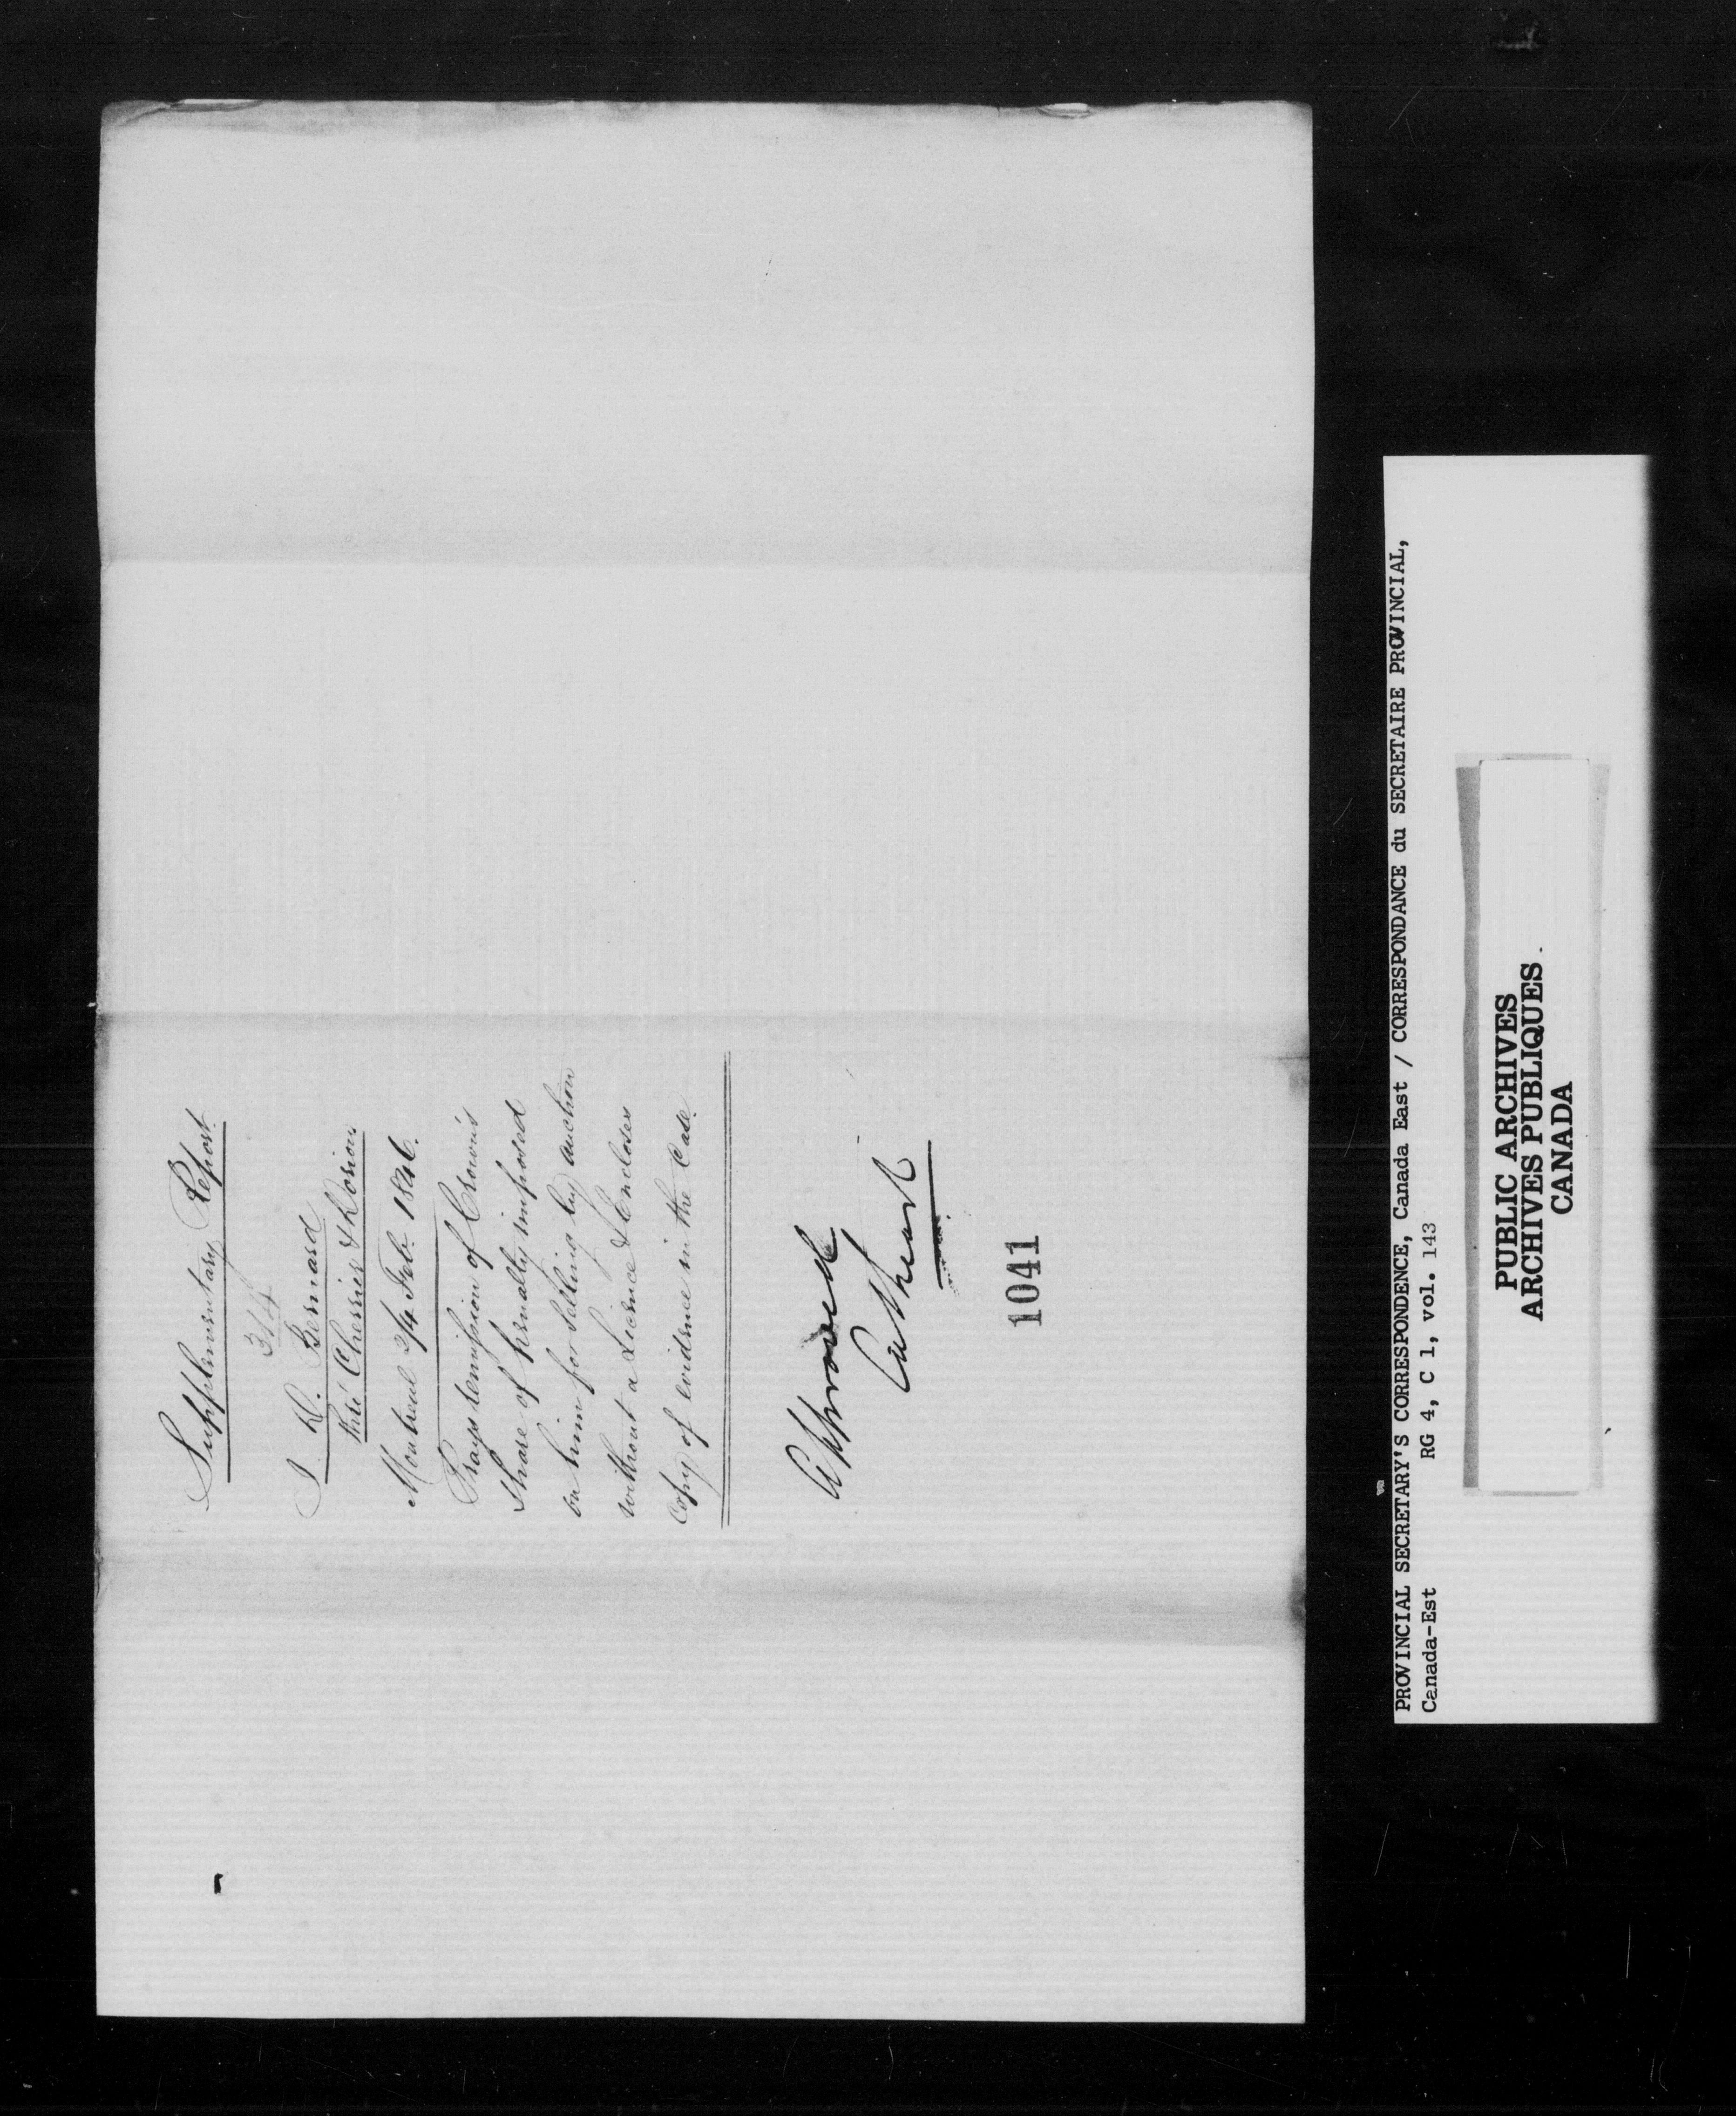 Supplementary Report.
314
J. D. Bernard
Thro' Cherrier & Dorion
Montreal 24 Feb. 1846.
Prays remission of Crown's
share of penalty imposed
on him for selling by auction
without a Licence & Encloses
copy of evidence in the Case.
Approved
Cathcart
1041
PROVINCIAL SECRETARY'S CORRESPONDENCE, Canada East / CORRESPONDANCE du SECRETAIRE PROVINCIAL,
Canada-Est RG 4, C 1, vol. 143
PUBLIC ARCHIVES
ARCHIVES PUBLIQUES
CANADA